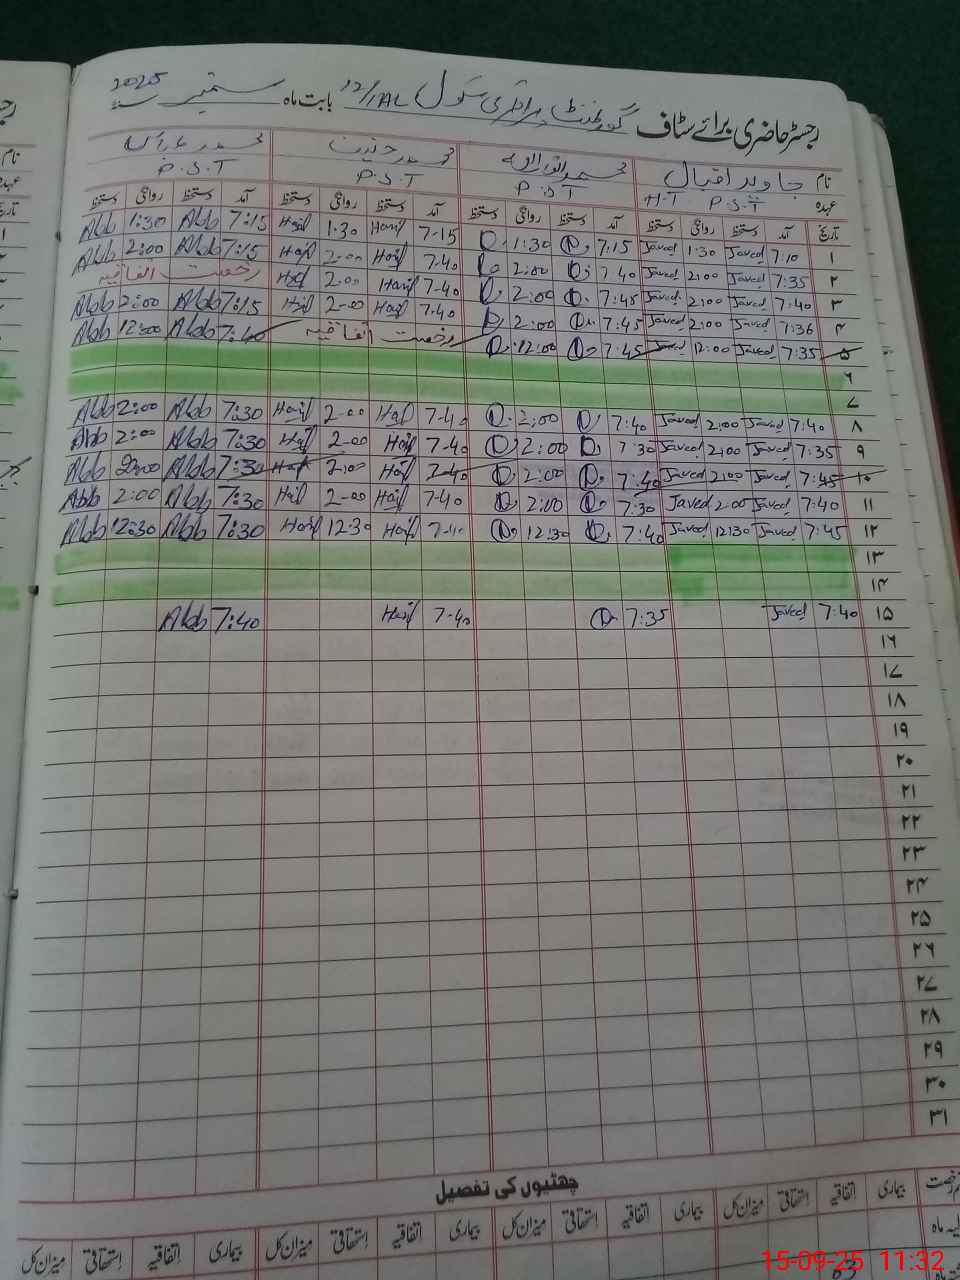 رجسٹر حاضری برائے سٹاف گورنمنٹ پرائمری سکول 12/1AL بابت ماہ ستمبر سنہ 2025
نام جاوید اقبال محمد حنیف محمد عباس
عہدہ H.T P.S.T P.S.T P.S.T P.S.T
تاریخ آمد دستخط روانگی دستخط آمد دستخط روانگی دستخط آمد دستخط روانگی دستخط آمد دستخط روانگی دستخط
۱ 7:10 Javed 1:30 Javed 7:15 D. 1:30 D. 7-15 Hanif 1-30 Hanif 7:15 Abb 1:30 Abb
۲ 7:35 Javed 2:00 Javed 7:40 D. 2:00 D. 7-40 Hanif 2-00 Hanif 7:15 Abb 2:00 Abb
۳ 7:40 Javed 2:00 Javed 7:45 D. 2:00 D. 7-40 Hanif 2:00 Hanif رخصت اتفاقیہ
۴ 7:36 Javed 2:00 Javed 7:45 D. 2:00 D. 7-40 Hanif 2-00 Hanif 7:15 Abb 2:00 Abb
۵ 7:35 Javed 12:00 Javed 7:45 D. 12:00 D. رخصت اتفاقیہ 7:40 Abb 12:00 Abb
۶
۷
۸ 7:40 Javed 2:00 Javed 7:40 D. 2:00 D. 7-40 Hanif 2-00 Hanif 7:30 Abb 2:00 Abb
۹ 7:35 Javed 2:00 Javed 7:30 D. 2:00 D. 7-40 Hanif 2-00 Hanif 7:30 Abb 2:00 Abb
۱۰ 7:45 Javed 2:00 Javed 7:40 D. 2:00 D. 7-40 Hanif 2-00 Hanif 7:30 Abb 2:00 Abb
۱۱ 7:40 Javed 2:00 Javed 7:30 D. 2:00 D. 7-40 Hanif 2-00 Hanif 7:30 Abb 2:00 Abb
۱۲ 7:45 Javed 12:30 Javed 7:40 D. 12:30 D. 7-40 Hanif 12-30 Hanif 7:30 Abb 12:30 Abb
۱۳
۱۴
۱۵ 7:40 Javed 7:35 D. 7-40 Hanif 7:40 Abb
۱۶
۱۷
۱۸
۱۹
۲۰
۲۱
۲۲
۲۳
۲۴
۲۵
۲۶
۲۷
۲۸
۲۹
۳۰
۳۱
چھٹیوں کی تفصیل
بیماری اتفاقیہ استحقاقی میزان کل بیماری اتفاقیہ استحقاقی میزان کل بیماری اتفاقیہ استحقاقی میزان کل بیماری اتفاقیہ استحقاقی میزان کل
15-09-25 11:32